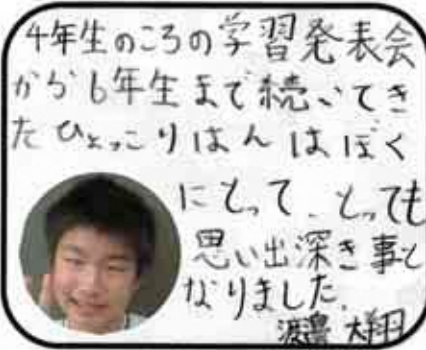 4年生のころの学習発表会
から6年生まで続いてき
たひょっこりはんはぼく
にとって、とっても
思い出深き事と
なりました。
渡邉 大翔